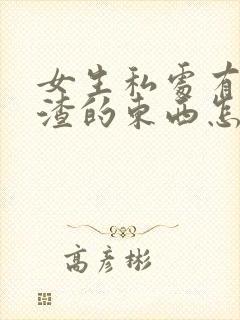 女生私处有
渣的东西怎
高彦彬